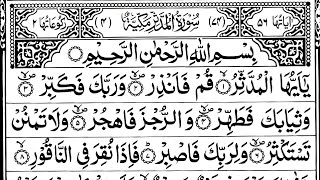 اٰیَاتُهَا ۵۶ (۷۴) سُوْرَةُ الْمُدَّثِّرِ مَكِّيَّةٌ (۴) رُكُوْعَاتُهَا ۲
بِسْمِ اللّٰهِ الرَّحْمٰنِ الرَّحِيْمِ
يٰۤاَيُّهَا الْمُدَّثِّرُ ۙ﴿۱﴾ قُمْ فَاَنْذِرْ ۪ۙ﴿۲﴾ وَرَبَّكَ فَكَبِّرْ ۪ۙ﴿۳﴾
وَثِيَابَكَ فَطَهِّرْ ۪ۙ﴿۴﴾ وَالرُّجْزَ فَاهْجُرْ ۪ۙ﴿۵﴾ وَلَا تَمْنُنْ
تَسْتَكْثِرُ ۪ۙ﴿۶﴾ وَلِرَبِّكَ فَاصْبِرْ ؕ﴿۷﴾ فَاِذَا نُقِرَ فِي النَّاقُوْرِ ۙ﴿۸﴾